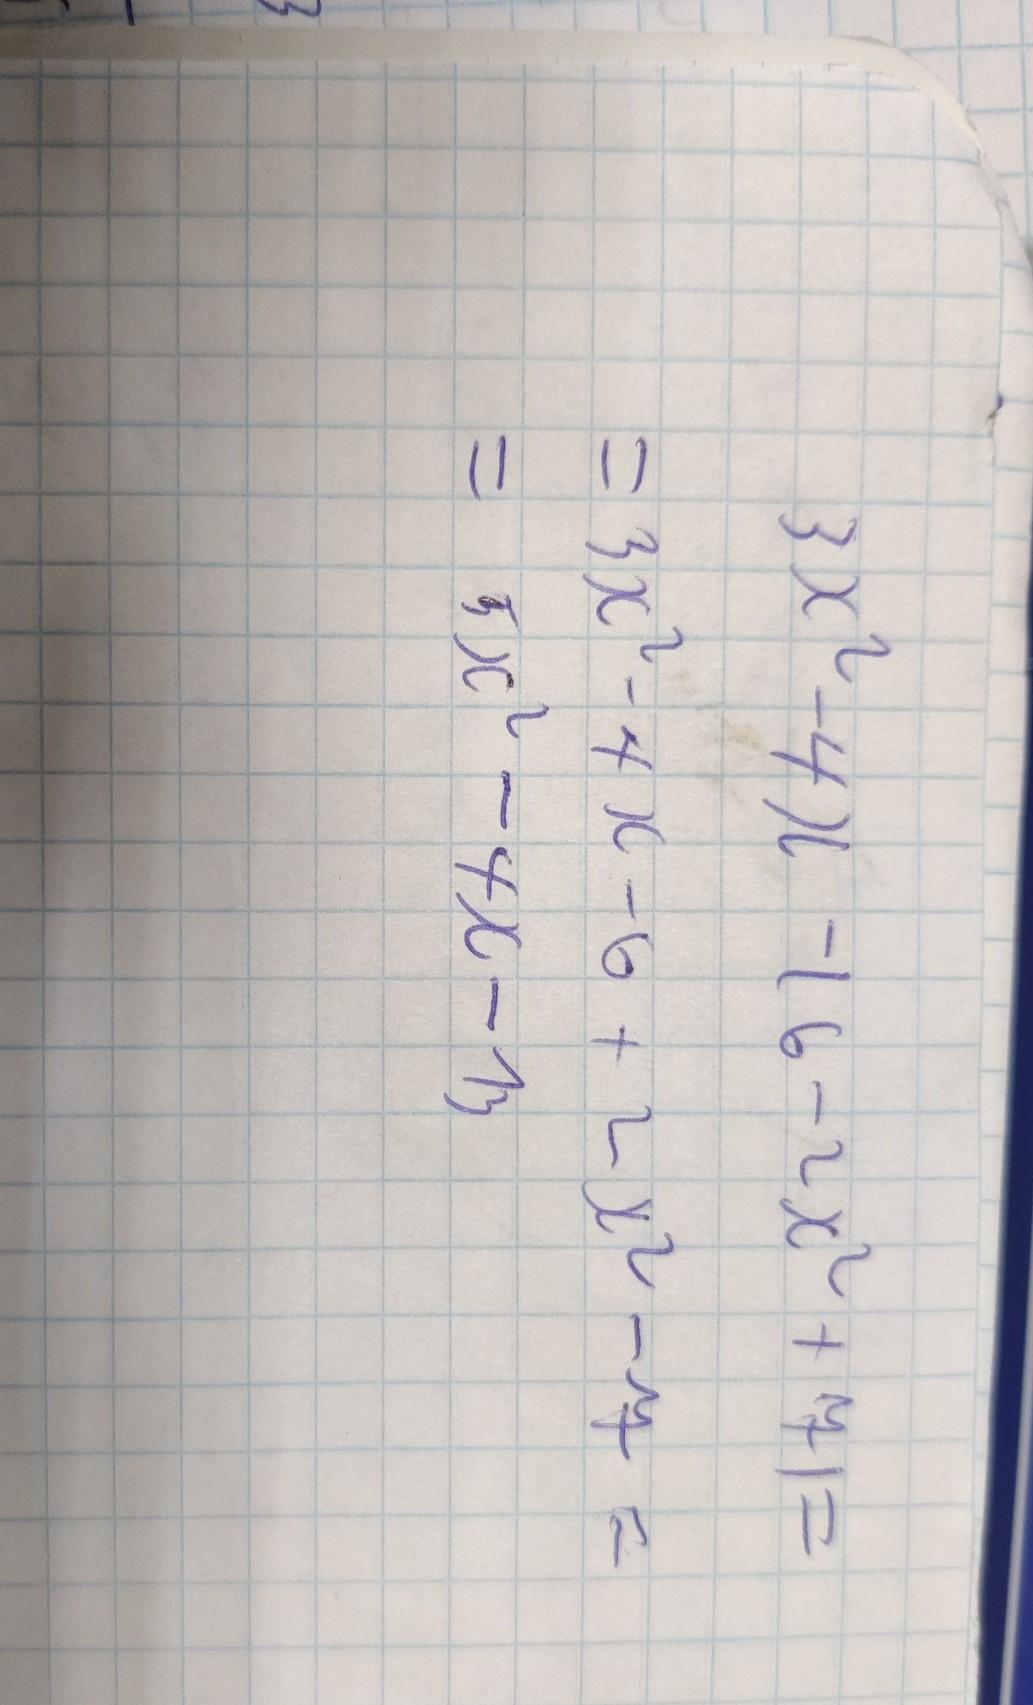 3x² - 4x - (6 - 2x² + 7) =
= 3x² - 4x - 6 + 2x² - 7 =
= 5x² - 4x - 13